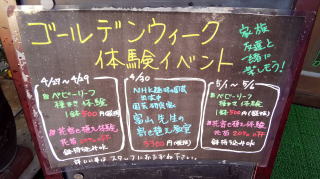 ゴールデンウィーク
体験イベント
家族
友達と
一緒に
楽しもう!
4/27~4/29
#ベビーリーフ
種まき体験
1鉢500円(税抜)
#花苗も植え体験
花苗20%OFF
鉢持込みOK
4/30
NHK趣味の園芸
日本の
園芸研究家
富山先生の
寄せ植え教室
5/1~5/6
#ベビーリーフ
種まき体験
1鉢500円(税抜)
#花苗も植え体験
花苗20%OFF
鉢持込みOK
詳しい事はスタッフにおたずね下さい。